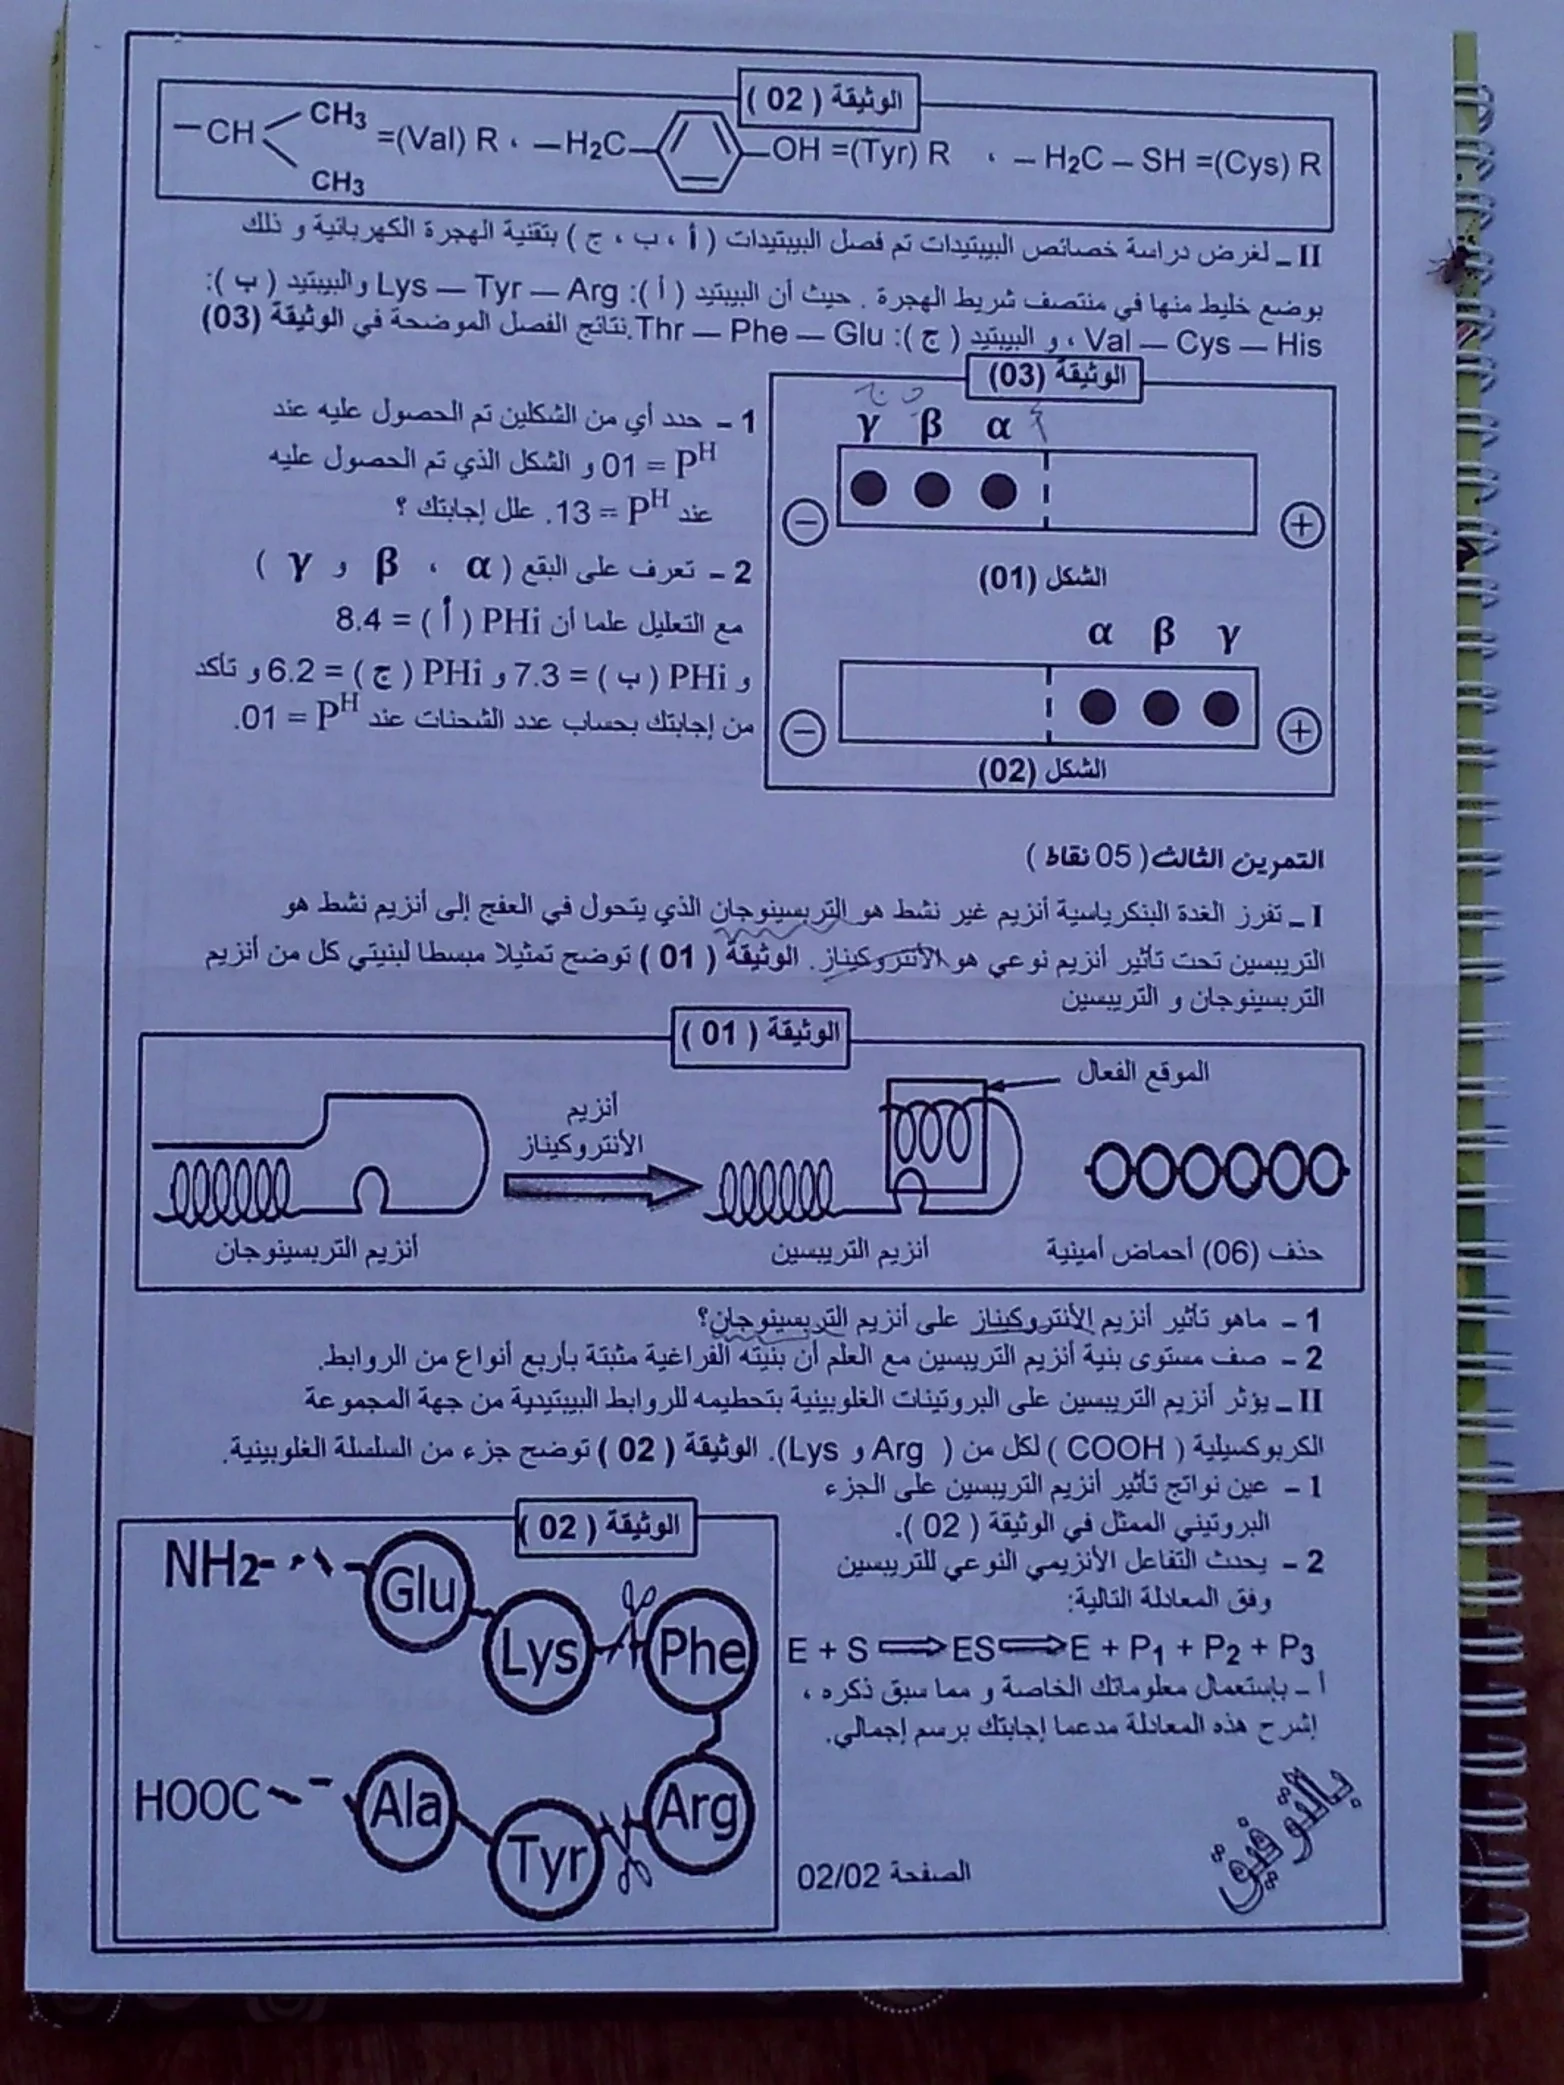 الوثيقة ( 02 )
—CH CH3 CH3 =(Val) R ، —H2C— —OH =(Tyr) R ، — H2C — SH =(Cys) R
II ـ لغرض دراسة خصائص الببتيدات تم فصل الببتيدات ( أ ، ب ، ج ) بتقنية الهجرة الكهربائية و ذلك
بوضع خليط منها في منتصف شريط الهجرة . حيث أن الببتيد ( أ ): Lys — Tyr — Arg والببتيد ( ب ):
Val — Cys — His ، و الببتيد ( ج ): Thr — Phe — Glu. نتائج الفصل الموضحة في الوثيقة (03)
الوثيقة (03)
γ β α
− +
الشكل (01)
α β γ
− +
الشكل (02)
1 – حدد أي من الشكلين تم الحصول عليه عند
P^H = 01 و الشكل الذي تم الحصول عليه
عند P^H = 13. علل إجابتك ؟
2 – تعرف على البقع ( α ، β و γ )
مع التعليل علما أن PHi ( أ ) = 8.4
و PHi ( ب ) = 7.3 و PHi ( ج ) = 6.2 و تأكد
من إجابتك بحساب عدد الشحنات عند P^H = 01.
التمرين الثالث( 05 نقاط )
I ـ تفرز الغدة البنكرياسية أنزيم غير نشط هو التربسينوجان الذي يتحول في العفج إلى أنزيم نشط هو
التريبسين تحت تأثير أنزيم نوعي هو الأنتروكيناز. الوثيقة ( 01 ) توضح تمثيلا مبسطا لبنيتي كل من أنزيم
التربسينوجان و التريبسين
الوثيقة ( 01 )
الموقع الفعال
أنزيم
الأنتروكيناز
أنزيم التربسينوجان
أنزيم التريبسين
حذف (06) أحماض أمينية
1 – ماهو تأثير أنزيم الأنتروكيناز على أنزيم التربسينوجان؟
2 – صف مستوى بنية أنزيم التريبسين مع العلم أن بنيته الفراغية مثبتة بأربع أنواع من الروابط.
II ـ يؤثر أنزيم التريبسين على البروتينات الغلوبينية بتحطيمه للروابط الببتيدية من جهة المجموعة
الكربوكسيلية ( COOH ) لكل من ( Arg و Lys). الوثيقة ( 02 ) توضح جزء من السلسلة الغلوبينية.
1 – عين نواتج تأثير أنزيم التريبسين على الجزء
البروتيني الممثل في الوثيقة ( 02 ).
2 – يحدث التفاعل الأنزيمي النوعي للتريبسين
وفق المعادلة التالية:
E + S ⟹ ES ⟹ E + P1 + P2 + P3
أ ـ بإستعمال معلوماتك الخاصة و مما سبق ذكره ،
إشرح هذه المعادلة مدعما إجابتك برسم إجمالي.
الوثيقة ( 02 )
NH2- Glu Lys Phe
HOOC Ala Tyr Arg
بالتوفيق
الصفحة 02/02